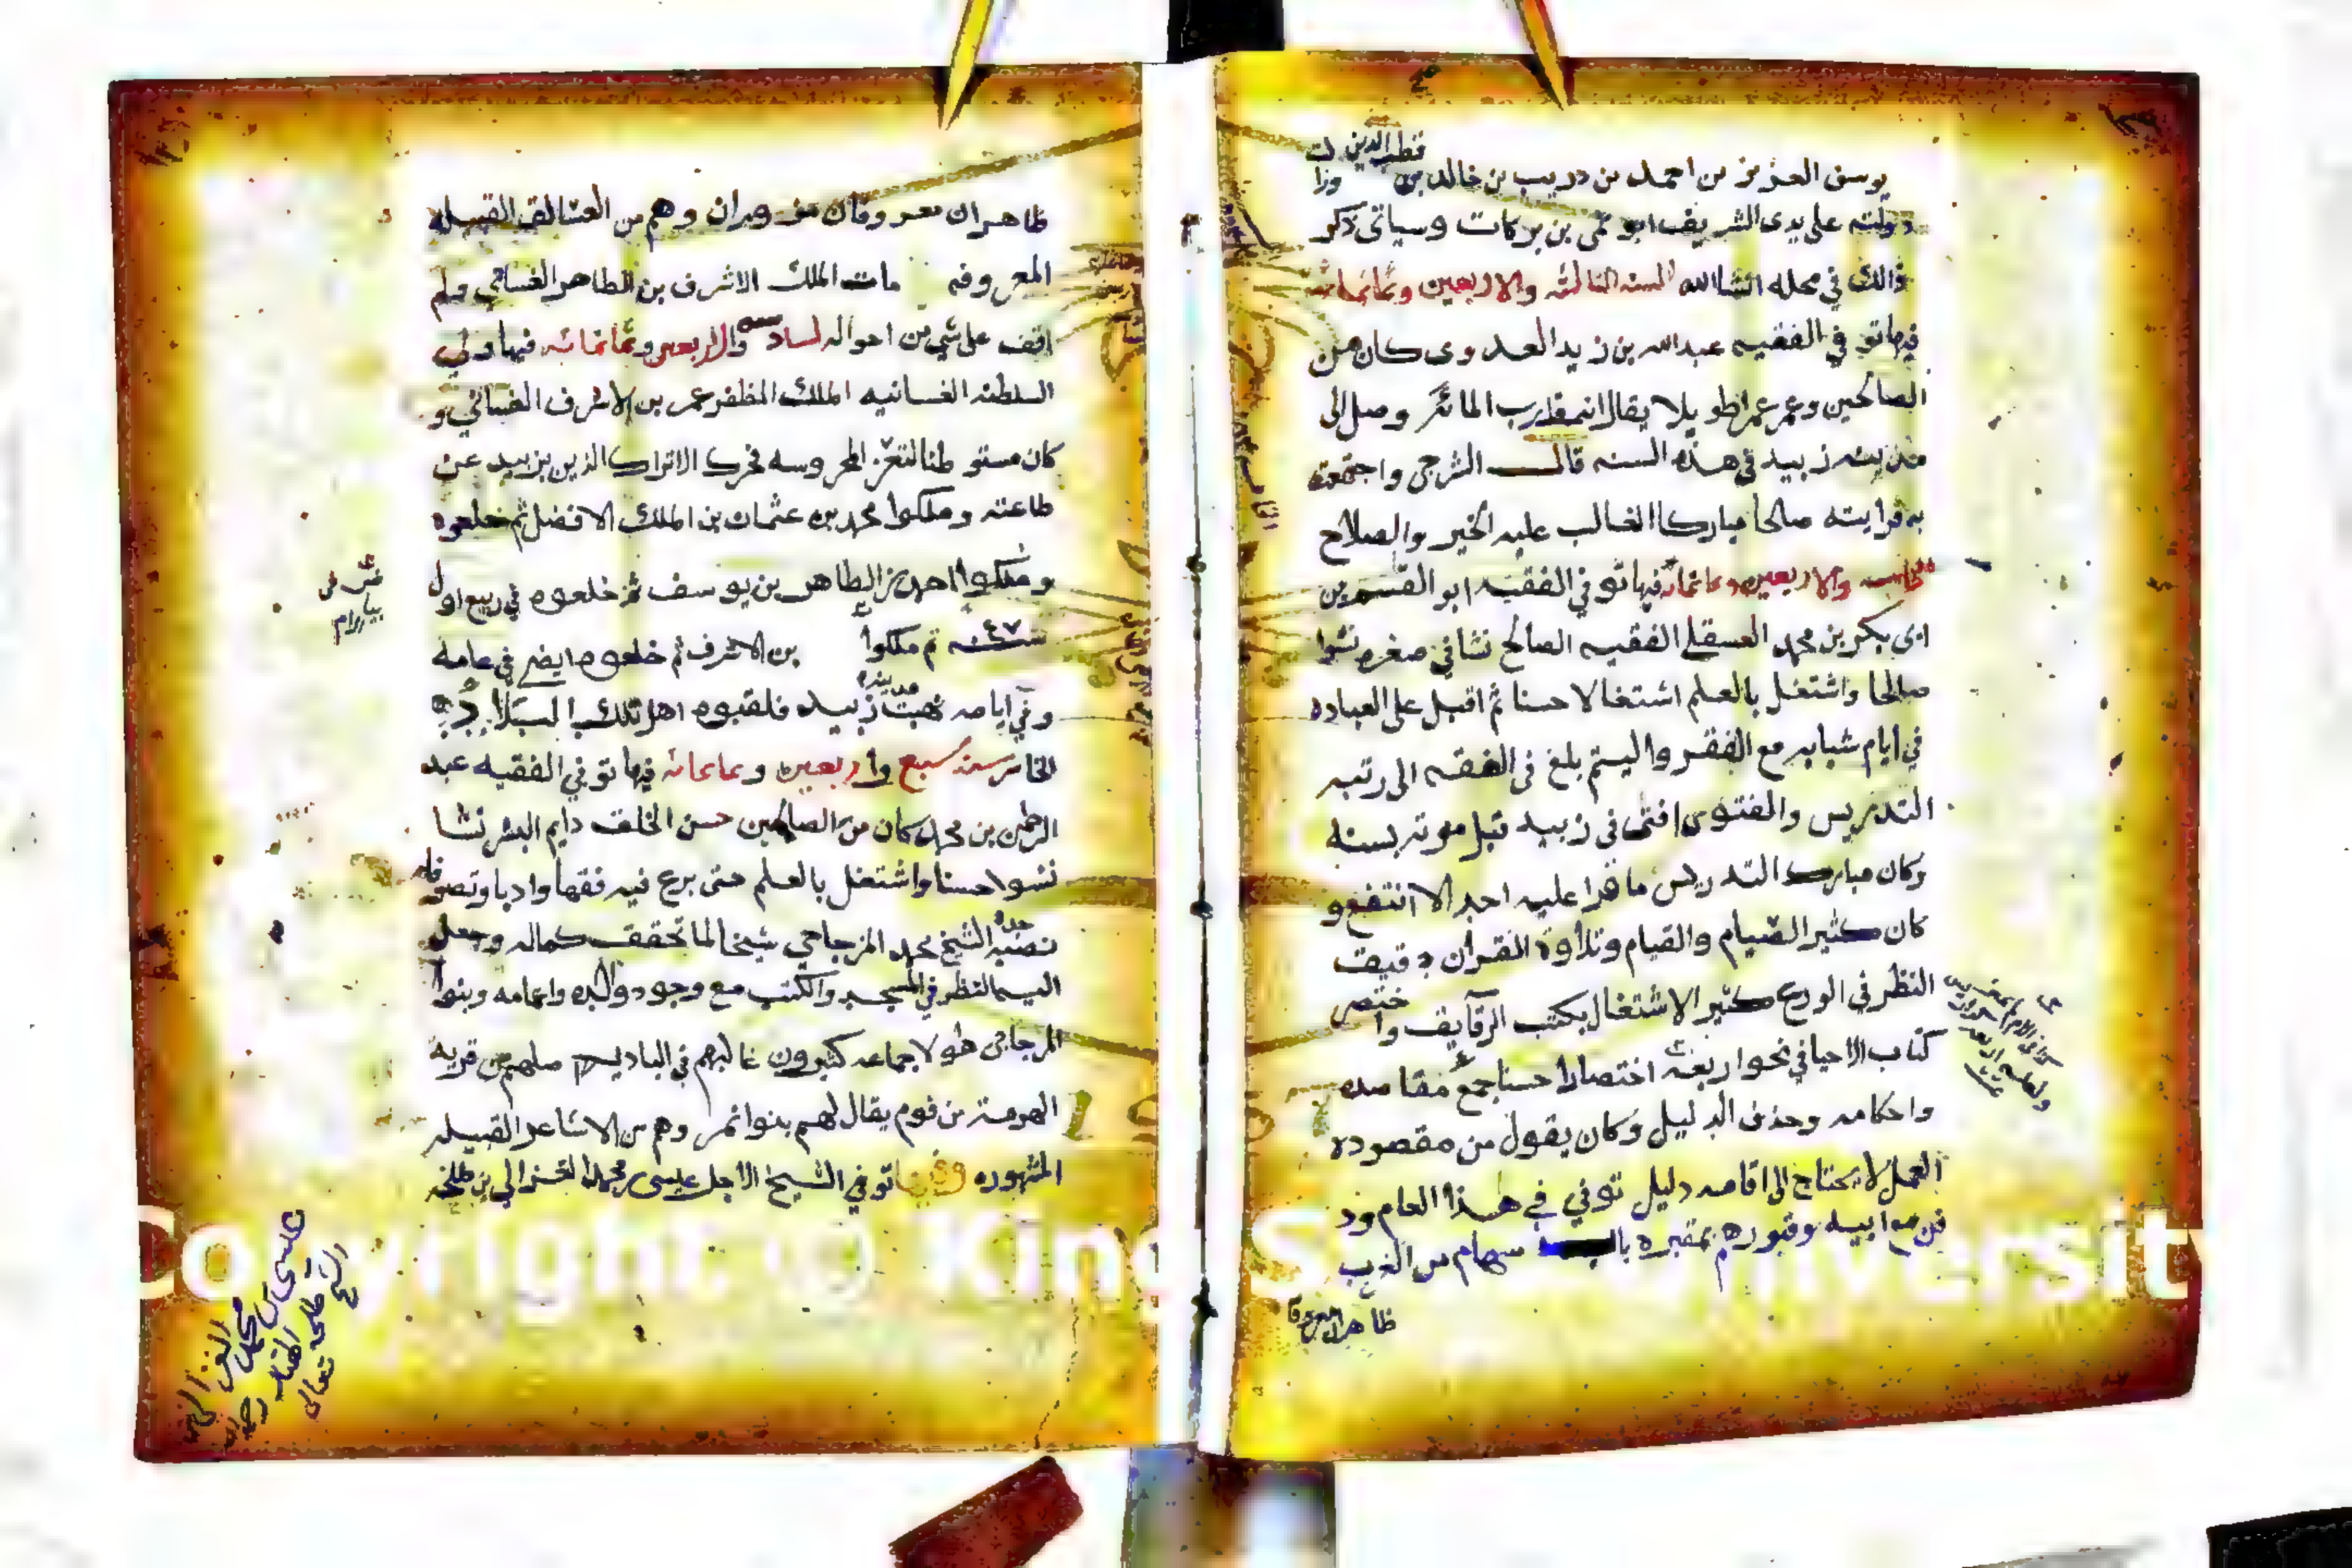 يوسف العزيز بن احمد بن دريب بن خالد بن قطب الدين وزالت
دولته على يدى الشريف ابو نمي بن بركات وسياتى ذكر
ذالك في محله انشا الله السنه الثالثه والاربعين وثمانمائه
فيها توفي الفقيه عبدالله بن زيد العدوى كان من
الصالحين وعمر عمرا طويلا يقال انه قارب المائه وصل الى
مدينه زبيد في هذه السنه قال الشرجي واجتمعت
به فرايته صالحا مباركا الغالب عليه الخير والصلاح
والاربعين وثمانمائه فيها توفي الفقيه ابو القسم بن
ابى بكر بن محمد العسقلي الفقيه الصالح نشا في صغره نشوا
صالحا واشتغل بالعلم اشتغالا حسنا ثم اقبل على العباده
في ايام شبابه مع الفقر واليتم بلغ في الفقه الى رتبه
التدريس والفتوى افتى في زبيد قبل موته بسنه
وكان مبارك التدريس ما قرا عليه احد الا انتفع و
كان كثير الصيام والقيام وتلاوة القران دقيق
النظر في الورع كثير الاشتغال بكتب الرقايق واختصر
كتاب الاحيا في نحو اربعة اختصارا حسنا جمع مقاصده
واحكامه وحذف الدليل وكان يقول من مقصوده
العمل لا يحتاج الى اقامه دليل توفي في هذا العام ود
فن مع ابيه وقبورهم بمقبره باب سهام من الغرب
ظاهران معروفان مزوران وهم من العسالق القبيله
المعروفه مات الملك الاشرف بن الظاهر الغساني ولم
اقف على شي من احواله السادسه والاربعين وثمانمائه فيها ولي
السلطنه الغسانيه الملك المظفر عمر بن الاشرف الغساني و
كان مستوطنا لتعز المحروسه فحرك الاتراك الذين بزبيد عن
طاعته وملكوا محمد بن عثمان بن الملك الافضل ثم خلعوه
وملكوا احمد بن الظاهر بن يوسف ثم خلعوه في ربيع اول
سنه ٤٧ ثم ملكوا بن الاشرف ثم خلعوه ايضا في عامه
وفي ايامه نهبت مدينه زبيد فلقبوه اهل تلك البلاد
سنه سبع واربعين وثمانمائه فيها توفي الفقيه عبد
الرحمن بن محمد كان من الصالحين حسن الخلق دايم البشر نشا
نشوا حسنا واشتغل بالعلم حتى برع فيه فقها وادبا وتصوفا
نصبه جده الشيخ محمد المزجاجي شيخا لما تحقق كماله وجعل
اليه النظر في المسجد والكتب مع وجود والده واعمامه وبنوا
المزجاجي هولا جماعه كثيرون غالبهم في الباديه اصلهم من قرية
الهرمة من قوم يقال لهم بنوا نمر وهم من الاشاعر القبيله
المشهوره وفيها توفي الشيخ الاجل عيسى بن محمد الغزالي بن طلحه
عيسى بن محمد الغزالي بن
الشيخ طلحه الهتار رحمه الله تعالى